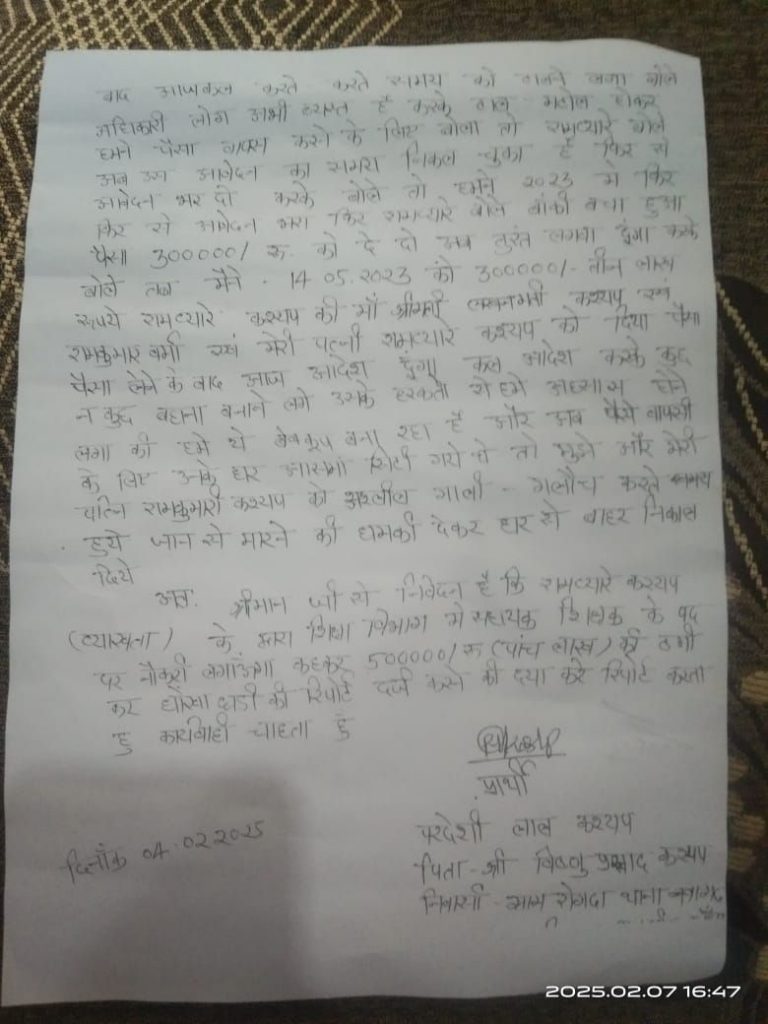 बाद आजकल करते करते समय को टालने लगा बोले
अधिकारी लोग अभी व्यस्त है करके टाल मटोल होकर
हमने पैसा वापस करने के लिए बोला तो रामप्यारे बोले
अब उस आवेदन का समय निकल चुका है फिर से
आवेदन भर दो करके बोले तो हमने 2023 मे फिर
फिर से आवेदन भरा फिर रामप्यारे बोले बांकी बचा हुआ
पैसा 300000/ रु. को दे दो अब तुरंत लगवा दुंगा करके
बोले तब मैने 14.05.2023 को 300000/- तीन लाख
रूपये रामप्यारे कश्यप की माँ श्रीमती लखनमती कश्यप एवं
रामकुमार वर्मा एवं मेरी पत्नी रामप्यारे कश्यप को दिया पैसा
पैसा लेने के बाद आज आदेश दुंगा कल आदेश करके कुछ
न कुछ बहाना बनाने लगे उसके हरकतो से हमे अहसास होने
लगा की हमे ये बेवकूफ बना रहा है और अब पैसे वापसी
के लिए उनके घर गये थे तो मुझे और मेरी
पत्नि रामकुमारी कश्यप को अश्लील गाली - गलौच करते
हुये जान से मारने की धमकी देकर घर से बाहर निकाल
दिये
अतः श्रीमान जी से निवेदन है कि रामप्यारे कश्यप
(व्याख्याता) के द्वारा शिक्षा विभाग मे सहायक शिक्षक के पद
पर नौकरी लगाउंगा कहकर 500000/रु (पांच लाख) की ठगी
कर धोखा धडी की रिपोर्ट दर्ज करने की दया करे रिपोर्ट करता
हु कार्यवाही चाहता हुं
प्रार्थी
परदेशी लाल कश्यप
दिनाँक 04.02.2025
पिता - श्री विष्णु प्रसाद कश्यप
निवासी - ग्राम रोगदा थाना नवागढ़
2025.02.07 16:47